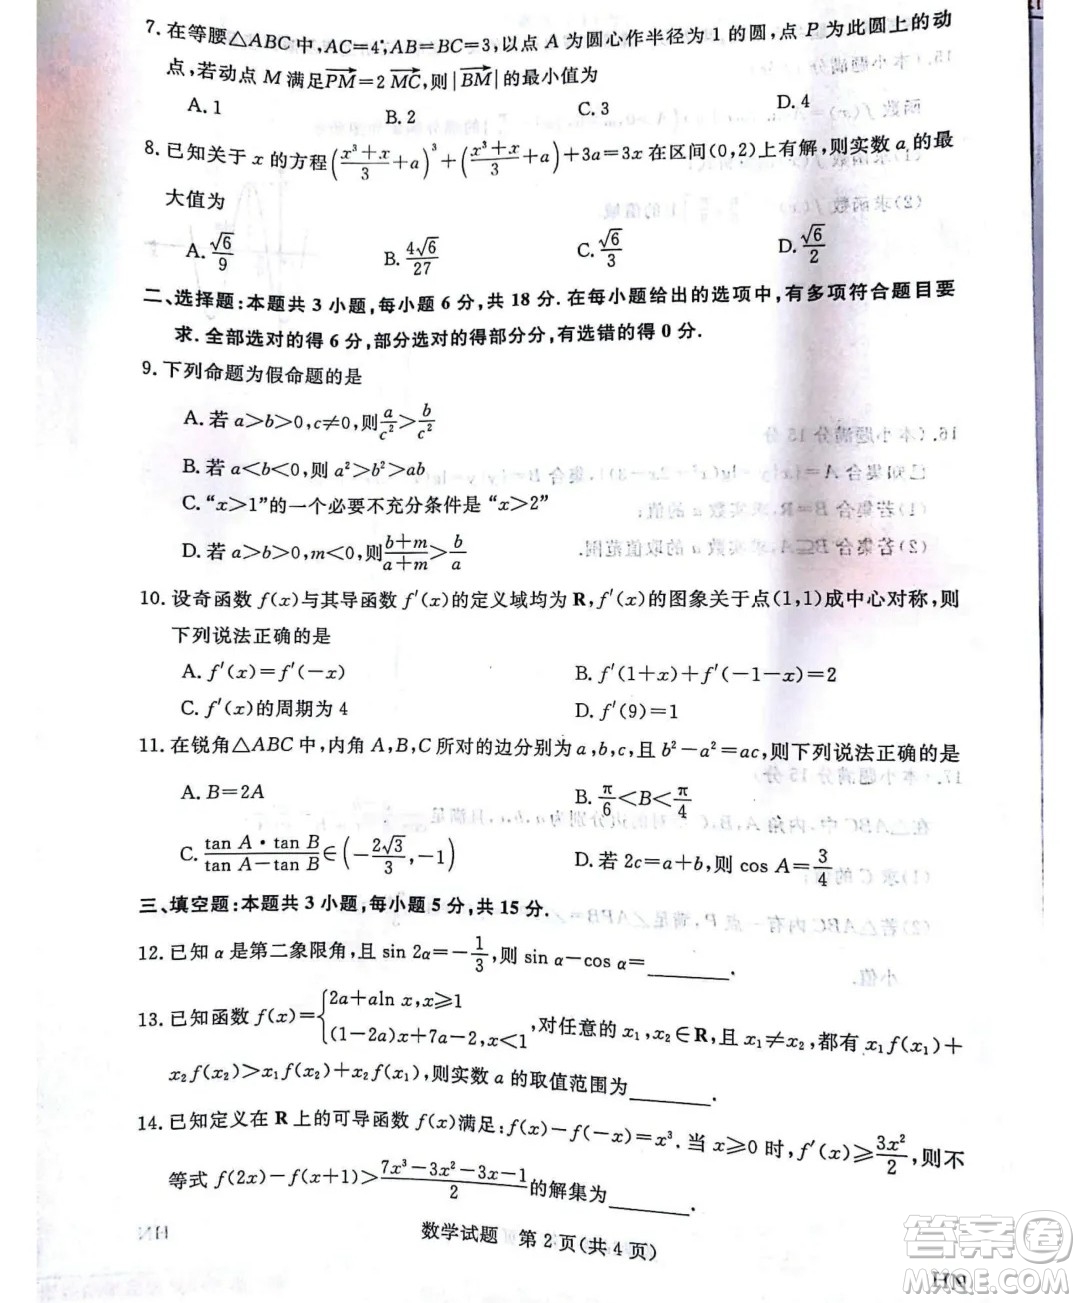 7. 在等腰△ABC中,AC=4,AB=BC=3,以点A为圆心作半径为1的圆,点P为此圆上的动
点,若动点M满足$\overrightarrow{PM}=2\overrightarrow{MC}$,则$|\overrightarrow{BM}|$的最小值为
A. 1  B. 2  C. 3  D. 4
8. 已知关于x的方程$\left(\frac{x^3+x}{3}+a\right)^3+\left(\frac{x^3+x}{3}+a\right)+3a=3x$在区间(0,2)上有解,则实数a的最
大值为
A. $\frac{\sqrt{6}}{9}$  B. $\frac{4\sqrt{6}}{27}$  C. $\frac{\sqrt{6}}{3}$  D. $\frac{\sqrt{6}}{2}$
二、选择题:本题共3小题,每小题6分,共18分. 在每小题给出的选项中,有多项符合题目要
求. 全部选对的得6分,部分选对的得部分分,有选错的得0分.
9. 下列命题为假命题的是
A. 若a>b>0,c≠0,则$\frac{a}{c^2}>\frac{b}{c^2}$
B. 若a<b<0,则a²>b²>ab
C. “x>1”的一个必要不充分条件是“x>2”
D. 若a>b>0,m<0,则$\frac{b+m}{a+m}>\frac{b}{a}$
10. 设奇函数f(x)与其导函数f′(x)的定义域均为R,f′(x)的图象关于点(1,1)成中心对称,则
下列说法正确的是
A. f′(x)=f′(-x)  B. f′(1+x)+f′(-1-x)=2
C. f′(x)的周期为4  D. f′(9)=1
11. 在锐角△ABC中,内角A,B,C所对的边分别为a,b,c,且b²-a²=ac,则下列说法正确的是
A. B=2A  B. $\frac{\pi}{6}<B<\frac{\pi}{4}$
C. $\frac{\tan A\cdot\tan B}{\tan A-\tan B}\in\left(-\frac{2\sqrt{3}}{3},-1\right)$  D. 若2c=a+b,则cos A=$\frac{3}{4}$
三、填空题:本题共3小题,每小题5分,共15分.
12. 已知α是第二象限角,且sin 2α=$-\frac{1}{3}$,则sin α-cos α=________.
13. 已知函数f(x)=$\begin{cases}2a+a\ln x,x\geqslant1\\(1-2a)x+7a-2,x<1\end{cases}$,对任意的x₁,x₂∈R,且x₁≠x₂,都有x₁f(x₁)+
x₂f(x₂)>x₁f(x₂)+x₂f(x₁),则实数a的取值范围为________.
14. 已知定义在R上的可导函数f(x)满足:f(x)-f(-x)=x³. 当x≥0时,f′(x)≥$\frac{3x^2}{2}$,则不
等式f(2x)-f(x+1)>$\frac{7x^3-3x^2-3x-1}{2}$的解集为________.
数学试题 第2页(共4页)
HN
答案圈